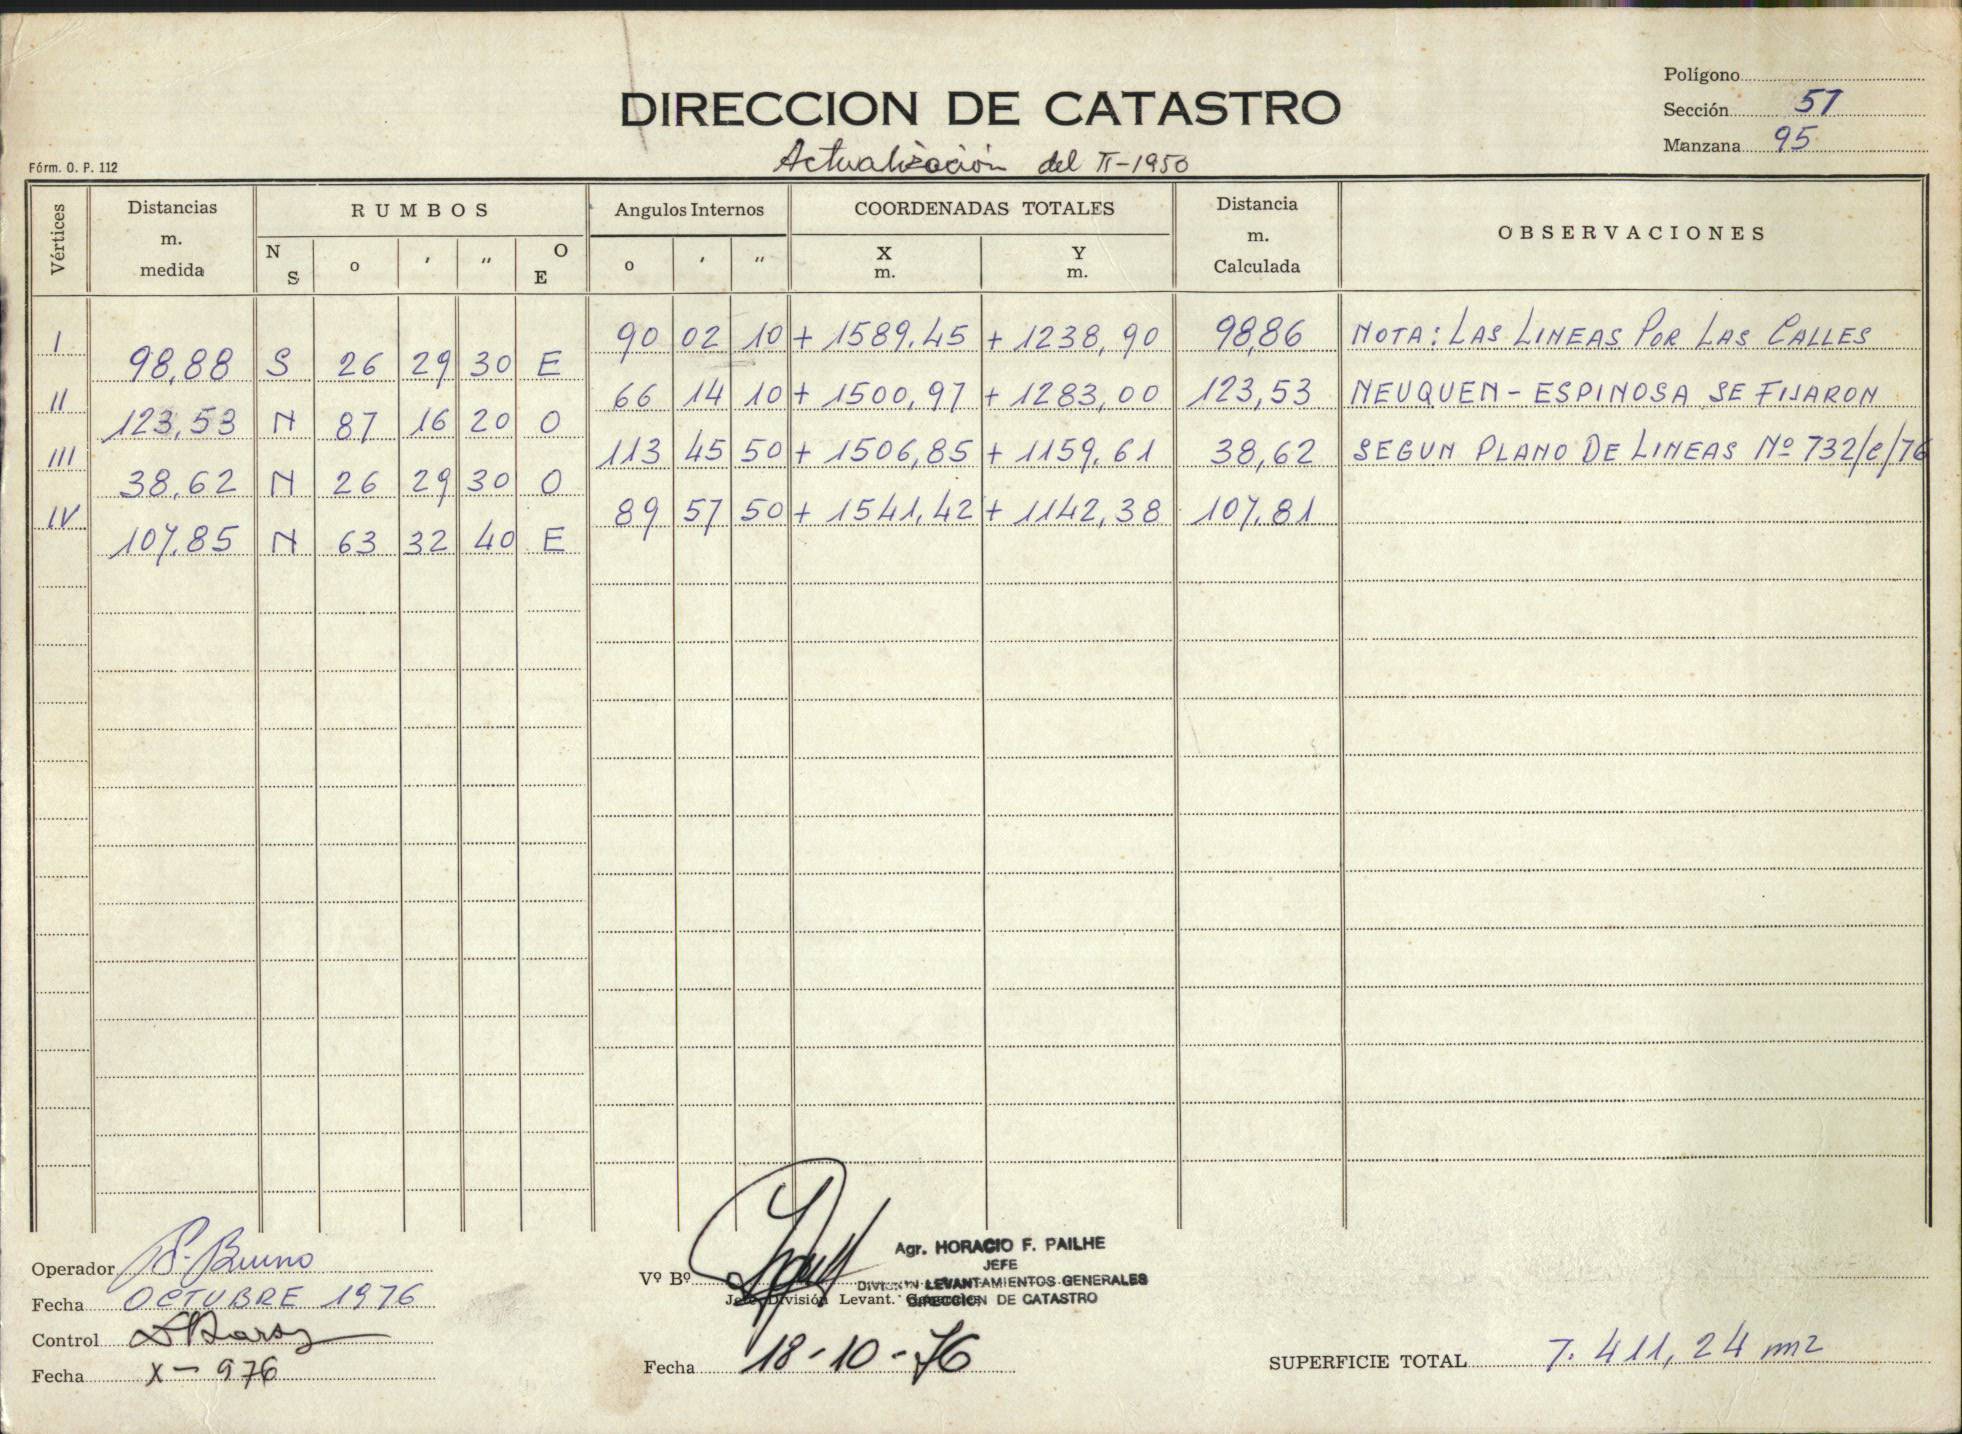 DIRECCION DE CATASTRO
Actualización del II-1950
Polígono
Sección 57
Manzana 95
Fórm. O. P. 112
Vértices Distancias m. medida RUMBOS N S o ' " O E Angulos Internos o ' " COORDENADAS TOTALES X m. Y m. Distancia m. Calculada OBSERVACIONES
I 90 02 10 + 1589,45 + 1238,90 98,86 NOTA: LAS LINEAS POR LAS CALLES
98,88 S 26 29 30 E
II 66 14 10 + 1500,97 + 1283,00 123,53 NEUQUEN - ESPINOSA SE FIJARON
123,53 N 87 16 20 O
III 113 45 50 + 1506,85 + 1159,61 38,62 SEGUN PLANO DE LINEAS Nº 732/C/76
38,62 N 26 29 30 O
IV 89 57 50 + 1541,42 + 1142,38 107,81
107,85 N 63 32 40 E
Operador P. Bruno
Fecha OCTUBRE 1976
Control
Fecha X-976
Vº Bº
Agr. HORACIO F. PAILHE
JEFE
DIVISION LEVANTAMIENTOS GENERALES
DIRECCION DE CATASTRO
Jefe División Levant. Generales
Fecha 18-10-76
SUPERFICIE TOTAL 7.411,24 m2